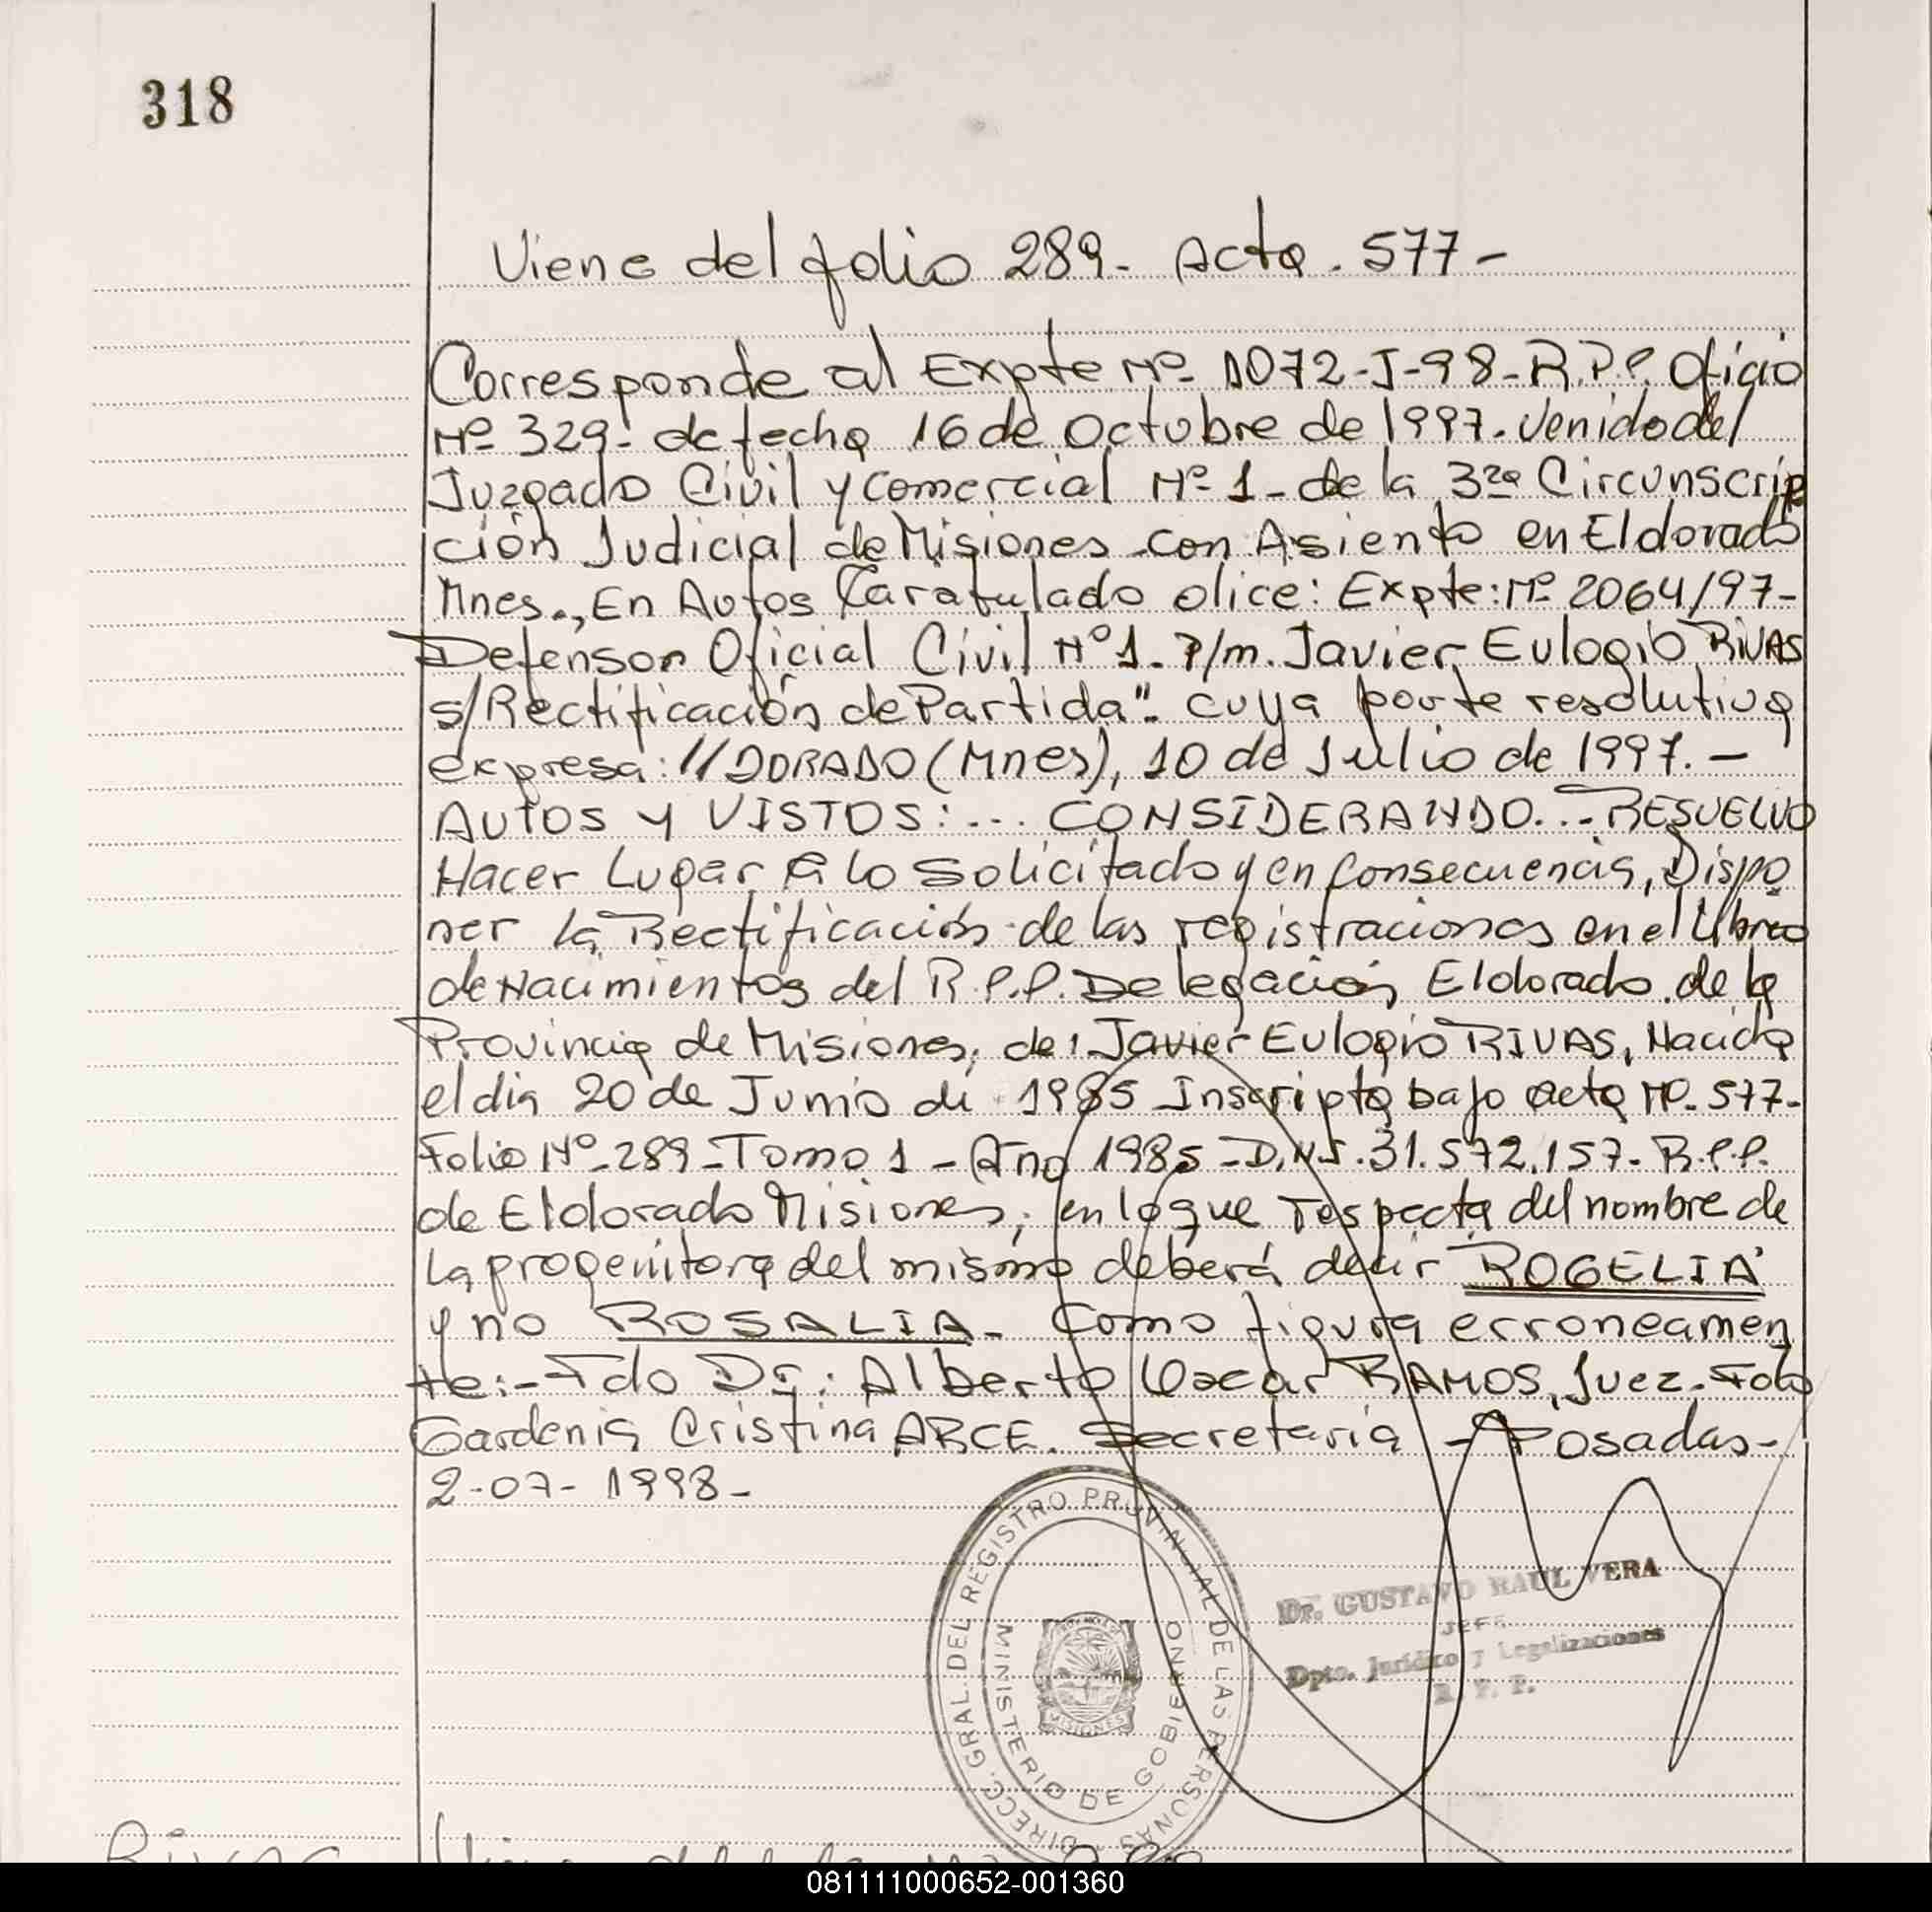 318
Viene del folio 289- Acta. 577-
Corresponde al Expte Nº 1072-J-98-R.P.P. Oficio
Nº 329- de fecha 16 de Octubre de 1997. Venido del
Juzgado Civil y Comercial Nº 1- de la 3ra Circunscrip
ción Judicial de Misiones con Asiento en Eldorado
Mnes., En Autos Caratulado dice: Expte: Nº 2064/97-
Defensor Oficial Civil Nº 1. P/m. Javier Eulogio RIVAS
s/Rectificación de Partida". cuya parte resolutiva
expresa: //DORADO (Mnes), 10 de Julio de 1997.-
AUTOS Y VISTOS:... CONSIDERANDO...-RESUELVO
Hacer Lugar a lo Solicitado y en Consecuencia, Dispo
ner la Rectificación de las registraciones en el Libro
de Nacimientos del R.P.P. Delegación Eldorado de la
Provincia de Misiones, de: Javier Eulogio RIVAS, Nacido
el dia 20 de Junio de 1985 Inscripta bajo acta Nº. 577-
Folio Nº-289-Tomo 1-Año 1985-D.N.I.31.572.157-R.P.P.
de Eldorado Misiones, en lo que respecta del nombre de
la progenitora del mismo deberá decir ROGELIA
y no ROSALIA- Como figura erroneamen
te:-Fdo Dr: Alberto Oscar RAMOS, Juez. Fdo
Gardenia Cristina ARCE. Secretaria - Posadas-
2-07-1998-
DIRECC. GRAL. DEL REGISTRO PROVINCIAL DE LAS PERSONAS
MINISTERIO DE GOBIERNO
MISIONES
Dr. GUSTAVO RAUL VERA
JEFE
Dpto. Jurídico y Legalizaciones
R. P. P.
Rivas
081111000652-001360